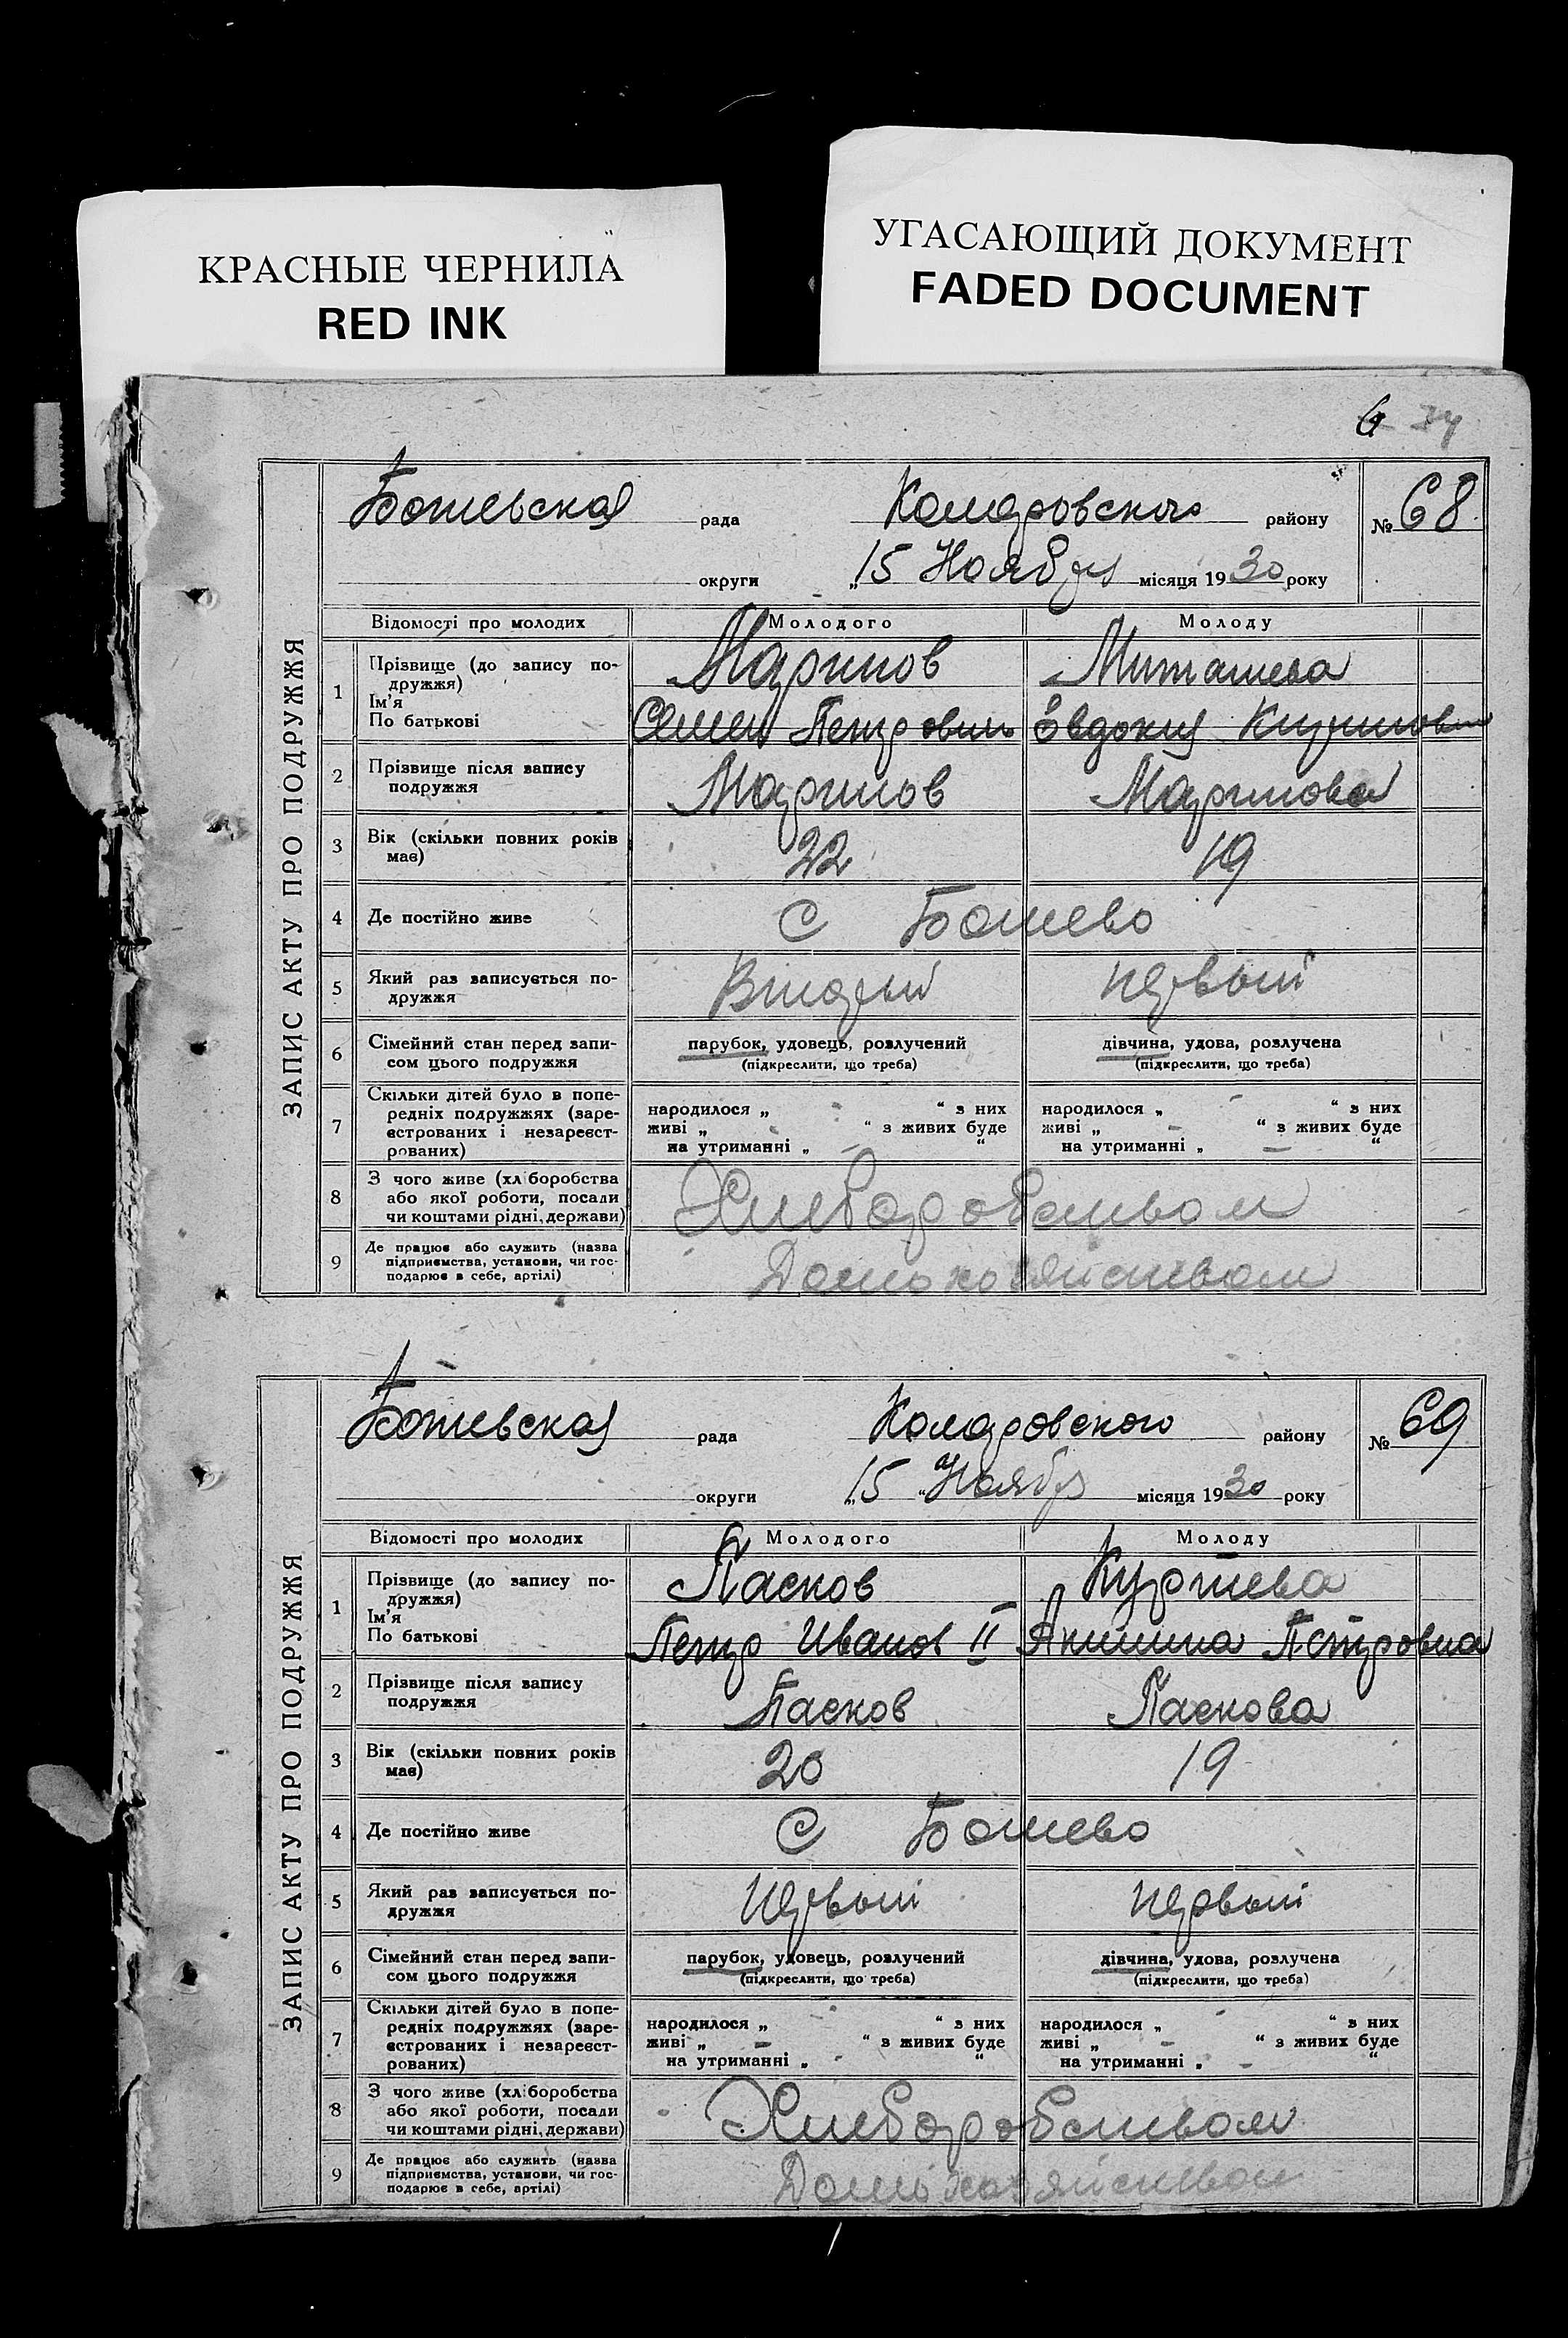 КРАСНЫЕ ЧЕРНИЛА
RED INK
УГАСАЮЩИЙ ДОКУМЕНТ
FADED DOCUMENT
ЗАПИС АКТУ ПРО ПОДРУЖЖЯ
Ботиевская рада Коларовского району № 68
округи „15 Ноября місяця 1930 року
Відомості про молодих Молодого Молоду
1 Прізвище (до запису по- Маринов
дружжя)
Ім'я
По батькові Семен Петрович Евдокия
2 Прізвище після запису Маринов Маринова
подружжя
3 Вік (скільки повних років 22 19
має)
4 Де постійно живе С Ботиево
5 Який раз записується по- Второй первый
дружжя
6 Сімейний стан перед запи- парубок, удовець, розлучений дівчина, удова, розлучена
сом цього подружжя (підкреслити, що треба) (підкреслити, що треба)
7 Скільки дітей було в попе-
редніх подружжях (заре- народилося „ - “ з них народилося „ - “ з них
єстрованих і незареєст- живі „ - “ з живих буде живі „ - “ з живих буде
рованих) на утриманні „ - “ на утриманні „ - “
8 З чого живе (хліборобства Хлеборобством
або якої роботи, посади
чи коштами рідні, держави)
9 Де працює або служить (назва Домохозяйством
підприємства, установи, чи гос-
подарює в себе, артілі)
ЗАПИС АКТУ ПРО ПОДРУЖЖЯ
Ботиевская рада Коларовского району № 69
округи „15 “ Ноябр місяця 1930 року
Відомості про молодих Молодого Молоду
1 Прізвище (до запису по- Пасков
дружжя)
Ім'я
По батькові Петр Иванов II Петровна
2 Прізвище після запису Пасков Паскова
подружжя
3 Вік (скільки повних років 20 19
має)
4 Де постійно живе С Ботиево
5 Який раз записується по- Первый Первый
дружжя
6 Сімейний стан перед запи- парубок, удовець, розлучений дівчина, удова, розлучена
сом цього подружжя (підкреслити, що треба) (підкреслити, що треба)
7 Скільки дітей було в попе-
редніх подружжях (заре- народилося „ - “ з них народилося „ - “ з них
єстрованих і незареєст- живі „ - “ з живих буде живі „ - “ з живих буде
рованих) на утриманні „ - “ на утриманні „ - “
8 З чого живе (хліборобства Хлеборобством
або якої роботи, посади
чи коштами рідні, держави)
9 Де працює або служить (назва Домохозяйством
підприємства, установи, чи гос-
подарює в себе, артілі)